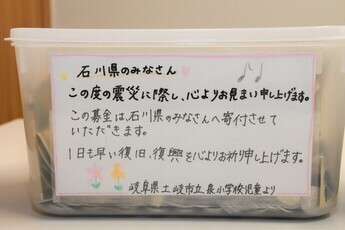 石川県のみなさん
この度の震災に際し、心よりお見まい申し上げます。
この募金は、石川県のみなさんへ寄付させて
いただきます。
1日も早い復旧、復興を心よりお祈り申し上げます。
岐阜県土岐市立泉小学校児童より